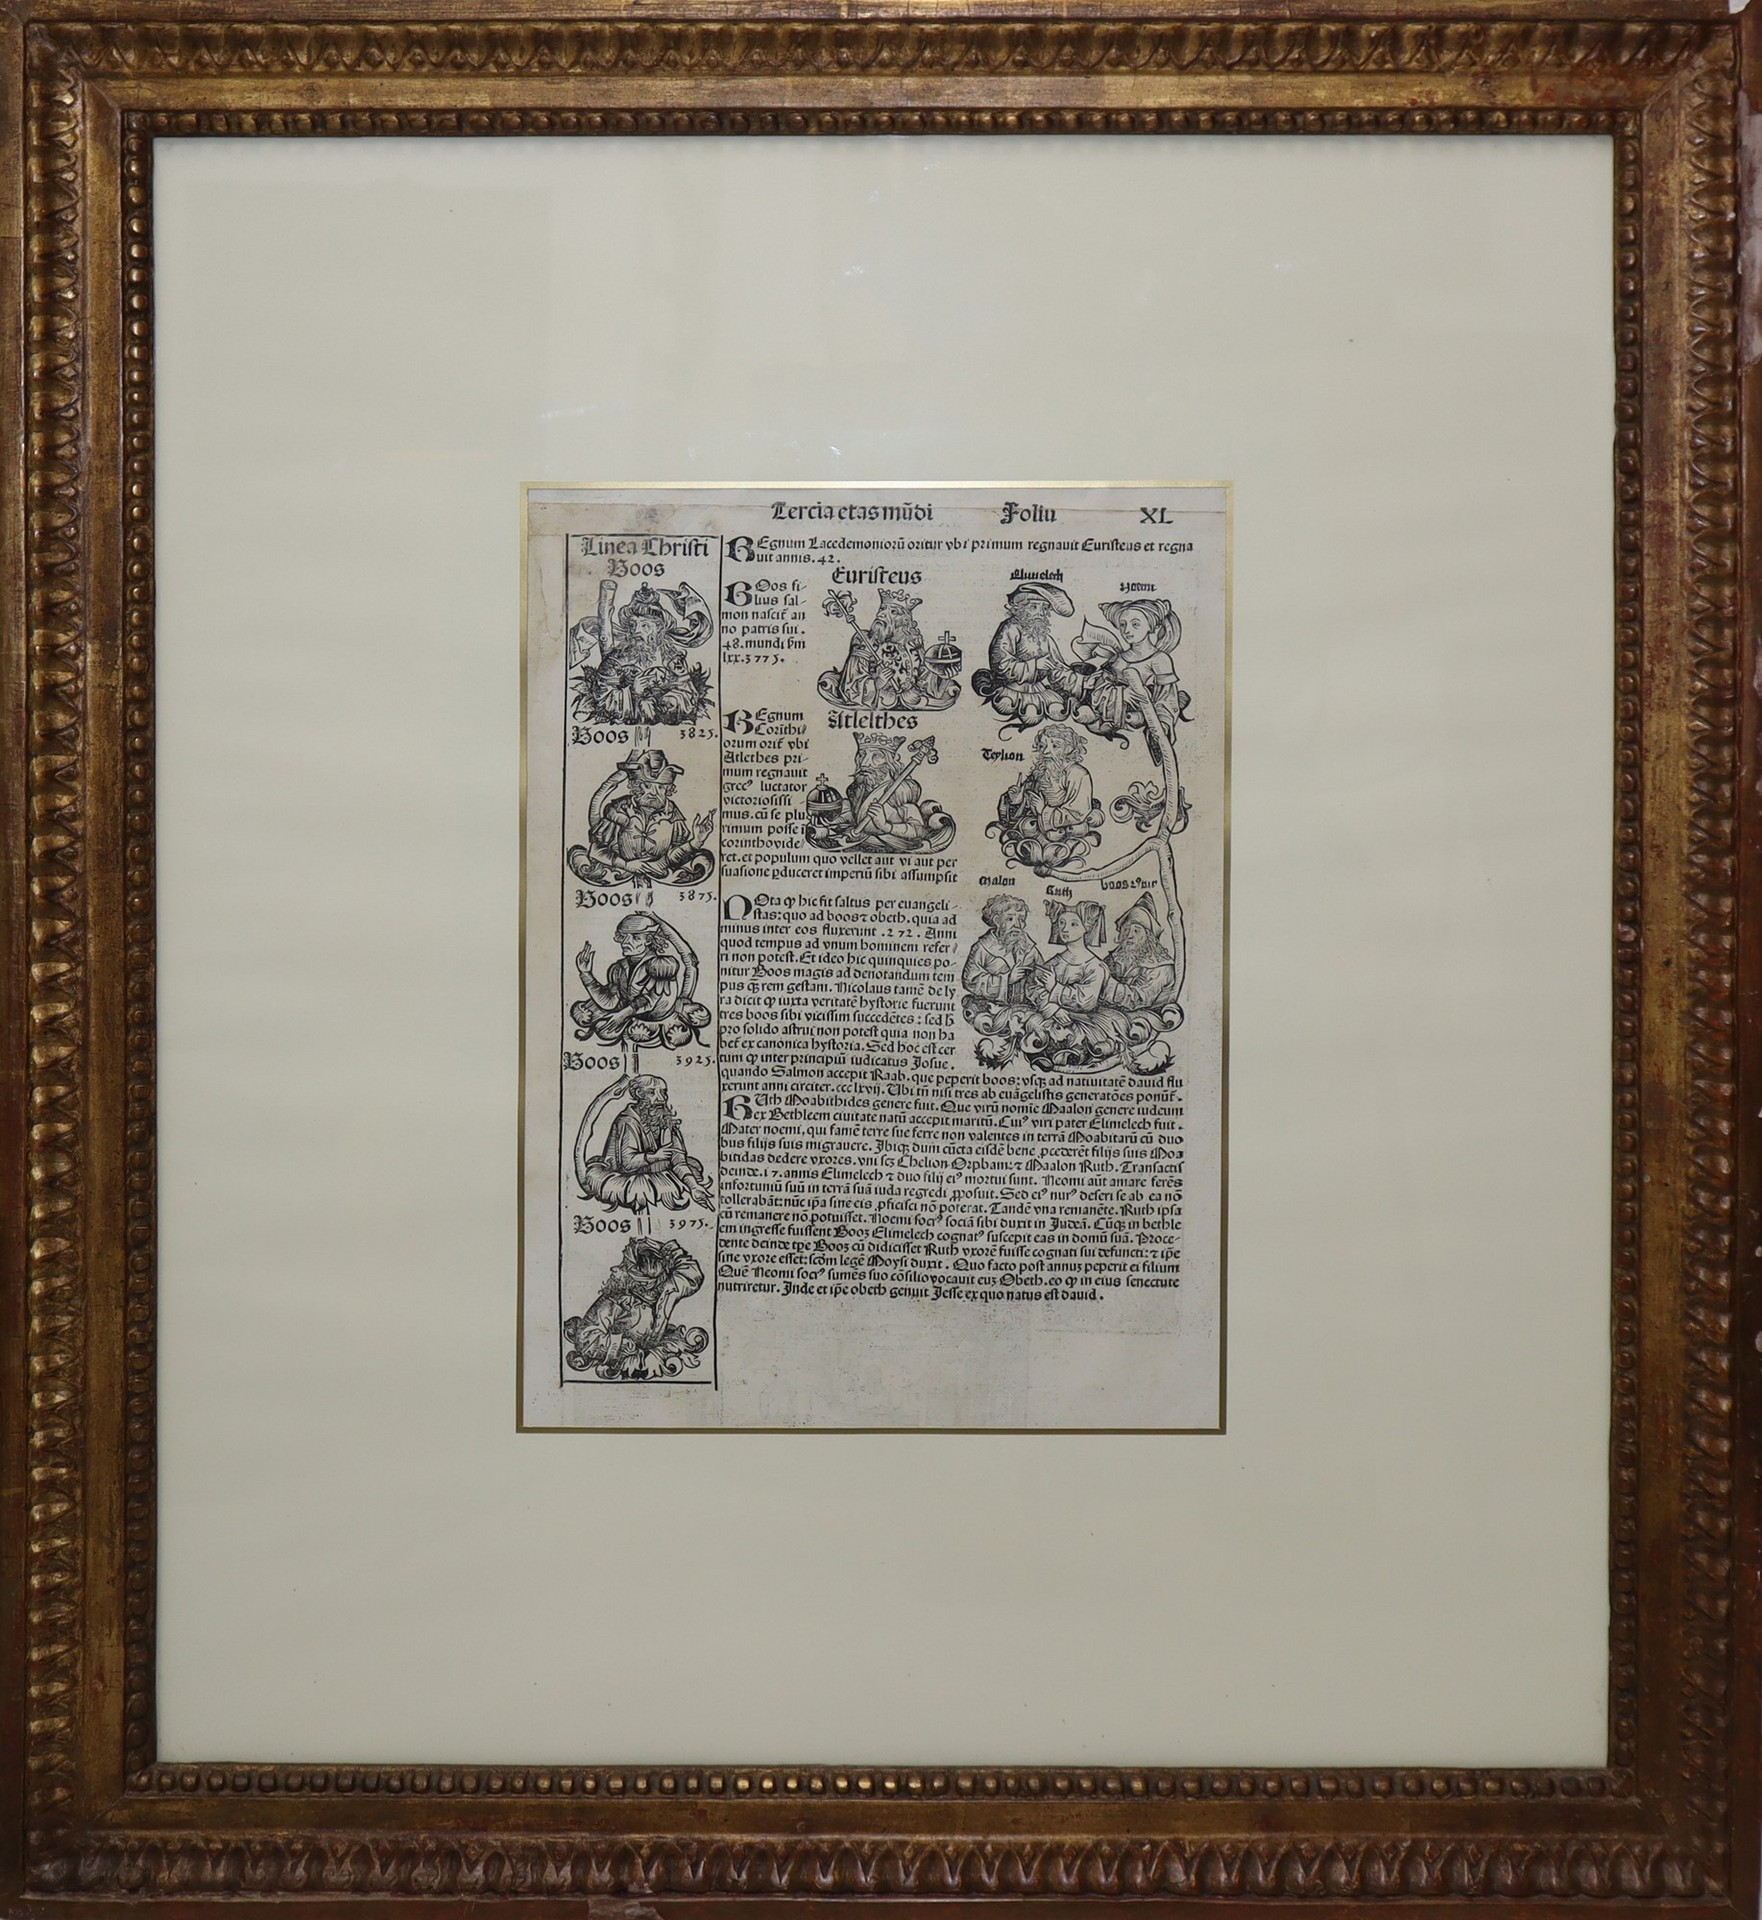 Tercia etas mūdi Foliū XL
Linea Christi
Boos
Boos 3825.
Boos 3875.
Boos 3925.
Boos 3975.
REgnum Lacedemoniorū oritur vbi primum regnauit Euristeus et regna
uit annis .42.
Euristeus
BOos fi-
lius sal-
mon nascit̄ an
no patris sui.
48. mundi ẜm
lxx. 3775.
REgnum
Corīthi
orum orit̄ vbi
Atlethes pri-
mum regnauit
grecꝰ luctator
victoriosissi-
mus. cū se plu
rimum posse ī
corintho vide
ret. et populum quo vellet aut vi aut per
suasione ꝑduceret imperiū sibi assumpsit
Atlethes
Elimelech
Noemi
Malon
Ruth
NOta ꝙ hic fit saltus per euangeli-
stas: quo ad boos ⁊ obeth. quia ad
minus inter eos fluxerunt .272. Anni
quod tempus ad vnum hominem refer
ri non potest. Et ideo hic quinquies po-
nitur Boos magis ad denotandum tem
pus q̄ꝫ rem gestam. Nicolaus tamē de ly
ra dicit ꝙ iuxta veritatē hystorie fuerunt
tres boos sibi vicissim succedētes: sed h̄
pro solido astrui non potest quia non ha
bet̄ ex canonica hystoria. Sed hoc est cer
tum ꝙ inter principiū iudicatus Josue.
quando Salmon accepit Raab. que peperit boos: vsqꝫ ad natiuitatē dauid flu
xerunt anni circiter. ccclxvij. Ubi tn̄ nisi tres ab euāgelistis generatōes ponūt̄.
RUth Moabithides genere fuit. Que virū nomīe Maalon genere iudeum
ex Bethleem ciuitate natū accepit maritū. Cuiꝰ viri pater Elimelech fuit.
Mater noemi, qui famē terre sue ferre non valentes in terrā Moabitarū cū duo
bus filijs suis migrauere. Ibiqꝫ dum cūcta eisdē bene ꝓcederēt filijs suis Moa
bitidas dedere vxores. vni scꝫ Chelion Orpham: ⁊ Maalon Ruth. Transactis
deinde .17. annis Elimelech ⁊ duo filij eiꝰ mortui sunt. Neomi aūt amare ferēs
infortuniū suū in terrā suā iuda regredi ꝓposuit. Sed eiꝰ nurꝰ deseri se ab ea nō
tollerabāt: nūc ip̄a sine eis ꝓficisci nō poterat. Tandē vna remanēte. Ruth ipsa
cū remanere nō potuisset. Noemi socrꝰ sociā sibi duxit in Judeā. Cūqꝫ in bethle
em ingresse fuissent Booꝫ Elimelech cognatꝰ suscepit eas in domū suā. Proce-
dente deinde tp̄e Booꝫ cū didicisset Ruth vxorē fuisse cognati sui defuncti: ⁊ ip̄e
sine vxore esset: scd̄m legē Moysi duxit. Quo facto post annuꝫ peperit ei filium
Quē Neomi socrꝰ sumēs suo cōsilio vocauit euꝫ Obeth. eo ꝙ in eius senectute
nutriretur. Inde et ip̄e obeth genuit Jesse ex quo natus est dauid.